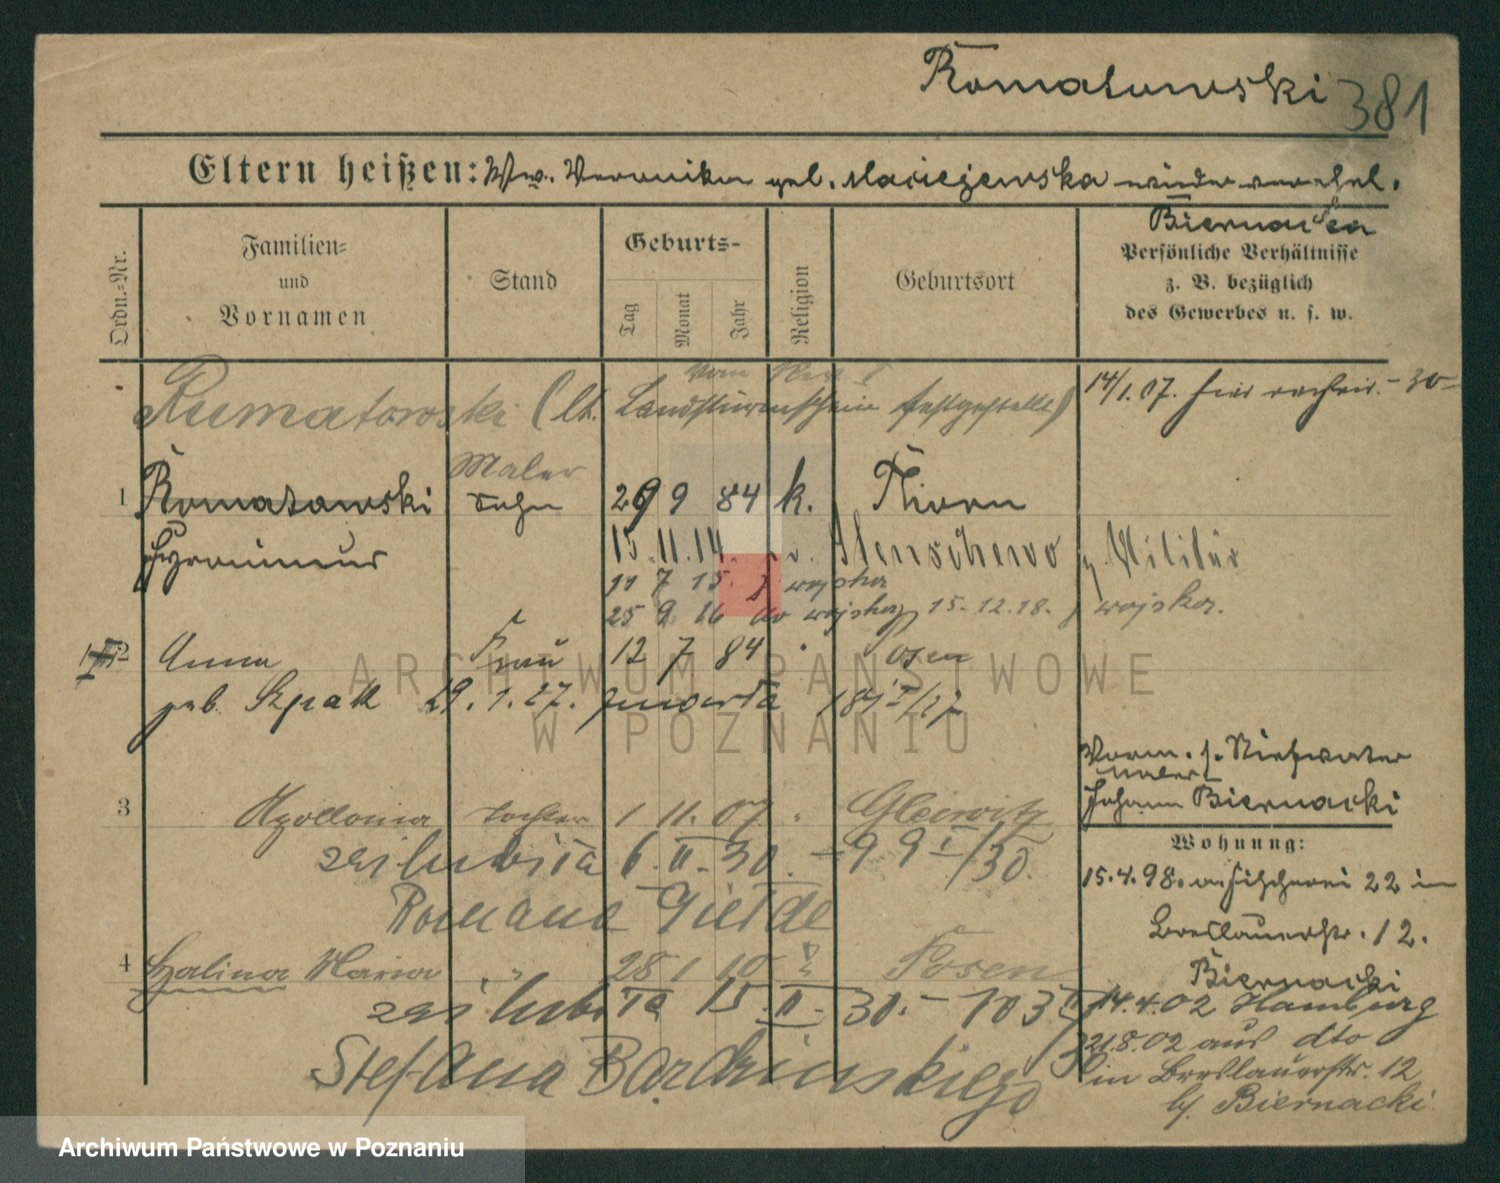 Romatowski 381
Eltern heißen: Ww. Veronika geb. Maciejewska wiederverehel.
Biernacka
Ordn.-Nr.
Familien-
und
Vornamen
Stand
Geburts-
Tag
Monat
Jahr
Religion
Geburtsort
Persönliche Verhältnisse
z. B. bezüglich
des Gewerbes u. s. w.
Rumatowski (lt. Landsturmschein festgestellt)
14/1.07. hier
Maler
1 Romatowski Sohn 29 9 84 k. Thorn
Hyronimus
15.11.14. Stenschewo z. Militär
7 15. z wojska
25 9 16 do wojska 15.12.18. z wojska.
2 Anna Frau 12 7 84 Posen
geb. Szpatt 29.1.27. zmarła
Vorm. s. Stiefvater
Maler
Johann Biernacki
3 Apollonia Tochter 1 11. 07 Gleiwitz
zaślubiła 6. II. 30. – 99 I/30.
Romana
Wohnung:
15.4.98. a. Fischerei 22 in
Breslauerstr. 12.
Biernacki
4 Halina Maria " 28 1 10 Posen
zaślubiła 15. II. 30. – 103
Stefana Bardzinskiego
14.4.02 Hamburg
21.8.02 aus dto
in Breslauerstr. 12
b/ Biernacki
ARCHIWUM PAŃSTWOWE
W POZNANIU
Archiwum Państwowe w Poznaniu